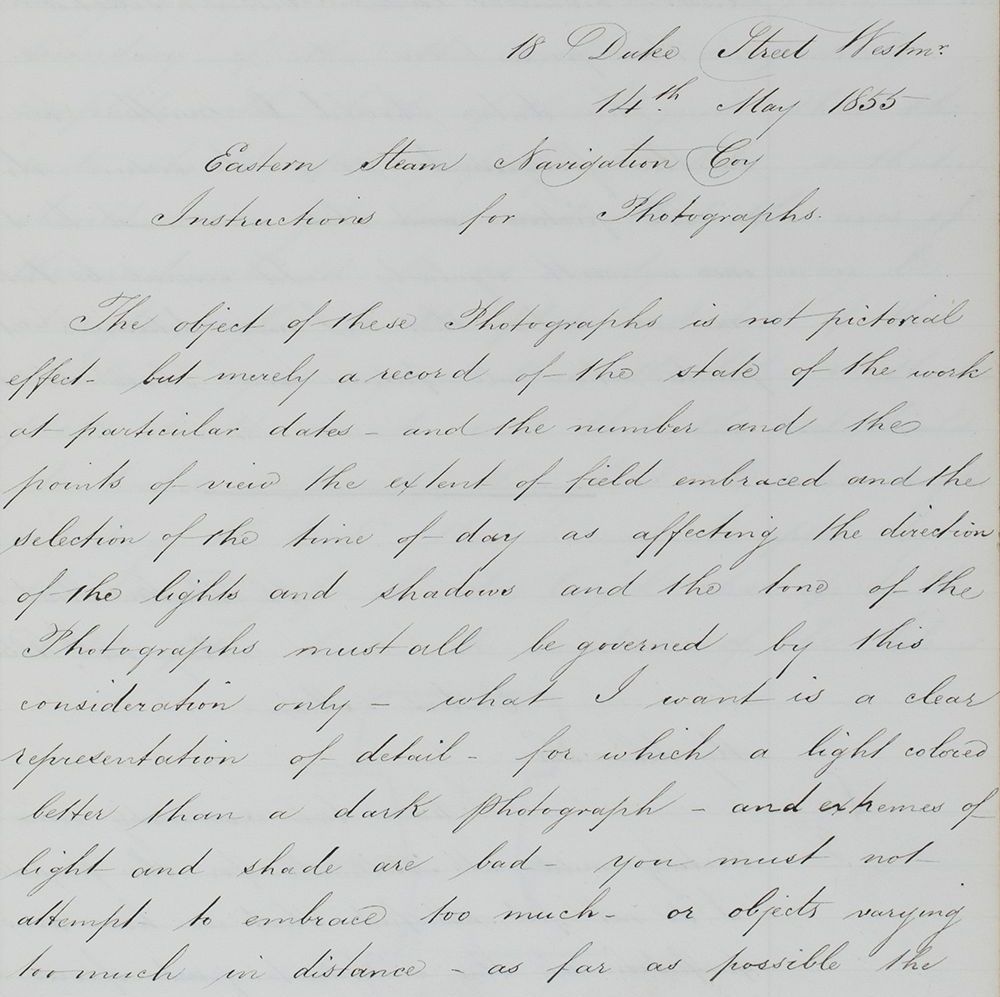 18 Duke Street Westmr.
14th. May 1855
Eastern Steam Navigation Coy
Instructions for Photographs.
The object of these Photographs is not pictorial
effect - but merely a record of the state of the work
at particular dates - and the number and the
points of view the extent of field embraced and the
selection of the time of day as affecting the direction
of the lights and shadows and the tone of the
Photographs must all be governed by this
consideration only - what I want is a clear
representation of detail - for which a light colored
better than a dark photograph - and extremes of
light and shade are bad - you must not
attempt to embrace too much - or objects varying
too much in distance - as far as possible the